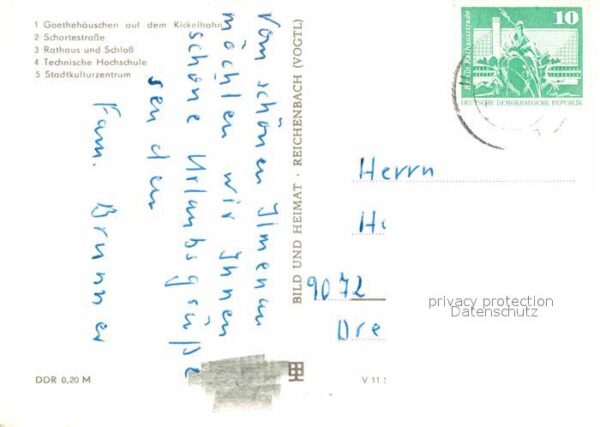 1 Goethehäuschen auf dem Kickelhahn
2 Schortestraße
3 Rathaus und Schloß
4 Technische Hochschule
5 Stadtkulturzentrum
Vom schönen Ilmenau
möchten wir Ihnen
schöne Urlaubsgrüße
senden
Fam. Brunner
DDR 0,20 M
BILD UND HEIMAT · REICHENBACH (VOGTL)
V 11
10
Berlin, Rathausstraße
DEUTSCHE DEMOKRATISCHE REPUBLIK
Herrn
9072
Dre
privacy protection
Datenschutz